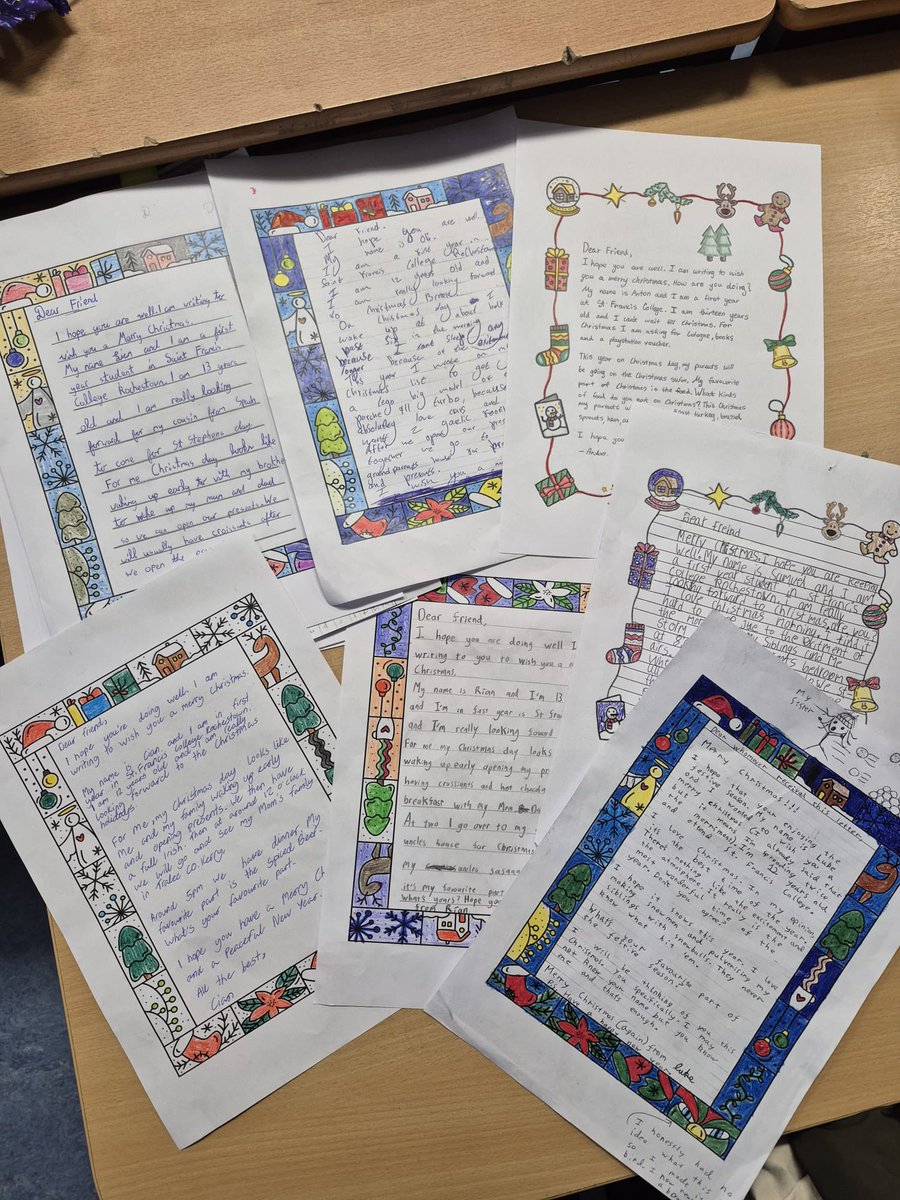 Dear Friend
I hope you are well. I am writing to
wish you a Merry Christmas.
My name and I am a first
year student in Saint Francis
College Rochestown. I am 13 years
old and I am really looking
forward for my cousin from Spain
to come for St Stephens day.
For me Christmas day looks like
waking up early to with my brother
to wake up my mum and dad
so we can open our presents. We
will usually have croissants after
we open the
Dear Friend.
I hope you are well.
My name is
I am a first year in
Saint Francis College Rochestown
I am 12 years old and
I am really looking forward
to Christmas Break.
On Christmas day I
wake up at about half
past six in the morning
because I cant sleep any
longer because of the
This year I wrote on my
Christmas list to get
a lego big model of a
porsche 911 turbo, because I
absolutley love cars and
After we open our
together we go to
grandparents
and presents.
I wish you a
Dear Friend,
I hope you are well. I am writing to wish
you a merry christmas. How are you doing?
My name is Anton and I am a first year
at St Francis College. I am thirteen years
old and I can't wait for christmas. For
Christmas I am asking for cologne, books
and a playstation voucher.
This year on Christmas day, my parents will
be going on the Christmas swim. My favourite
part of Christmas is the food. What kinds
of food do you eat on Christmas? This Christmas
my parents turkey, brussel
sprouts, ham,
I hope
- Anton
Dear Freind
Merry Christmas, I hope you are keeping
well. My name is Samuel and I am
a first year student in St Francis
College Rochestown. I am
looking forward to christmas, are you
Christmas morning, I find it
hard to due to the exitment of
the my siblings and me
storm bedroom
at
airs.
My
sister
Dear friend,
I hope you're doing well. I am
writing to wish you a merry Christmas.
My name is Cian and I am in first
year in St. Francis College Rochestown.
I am 12 years old and I am really
looking forward to the Christmas
holidays.
For me my Christmas day looks like
Me and my family waking up early
and opening presents. We then have
a full Irish, then at around 12 o'clock
we will go and see my Mom's family
in Tralee Co. Kerry.
Around 5pm we have dinner. My
favourite part is the Spiced Beef.
What's your favourite part.
I hope you have a Merry Ch
and a peaceful New Year.
All the best,
Cian
Dear Friend,
I hope you are doing well I
writing to you to wish you a
Christmas.
My name is Rian and I'm 13
and I'm in first year is St
and I'm really looking foward
For me my Christmas day looks
waking up early opening my pr
having croissients and hot choc
breakfast with my Mom
At two I go over to my
uncles house for Christmas
My uncles
it's my favourite part
whats yours? Hope you
from Rian
Dear whoever received this letter
Merry Christmas!!!
I hope that your enjoying the
festive season. My name is Luke
and I wanted to wish you a
merry christmas (I already said that
but the more times I've said
the merrier). I'm 12 years old
and I'm attending St. Francis College.
I love Christmas. In my opinion,
it's the best time of the year.
There's nothing like the excitement and
atmosphere. It really is the
most wonderful time of the
year. Don't you agree?
If it snows this year, I love
hopping in and pulverising my
siblings with snowballs. They never
know what hit 'em.
Whats your favourite part of
the festive season?
I will be thinking of you this
Christmas, you specifically. I may
not know your name but you know
me now and thats enough
Merry Christmas (again) from Luke
P.S. Have a happy new year
(I honestly had no
idea what this
so I made it a
bird. I now
a